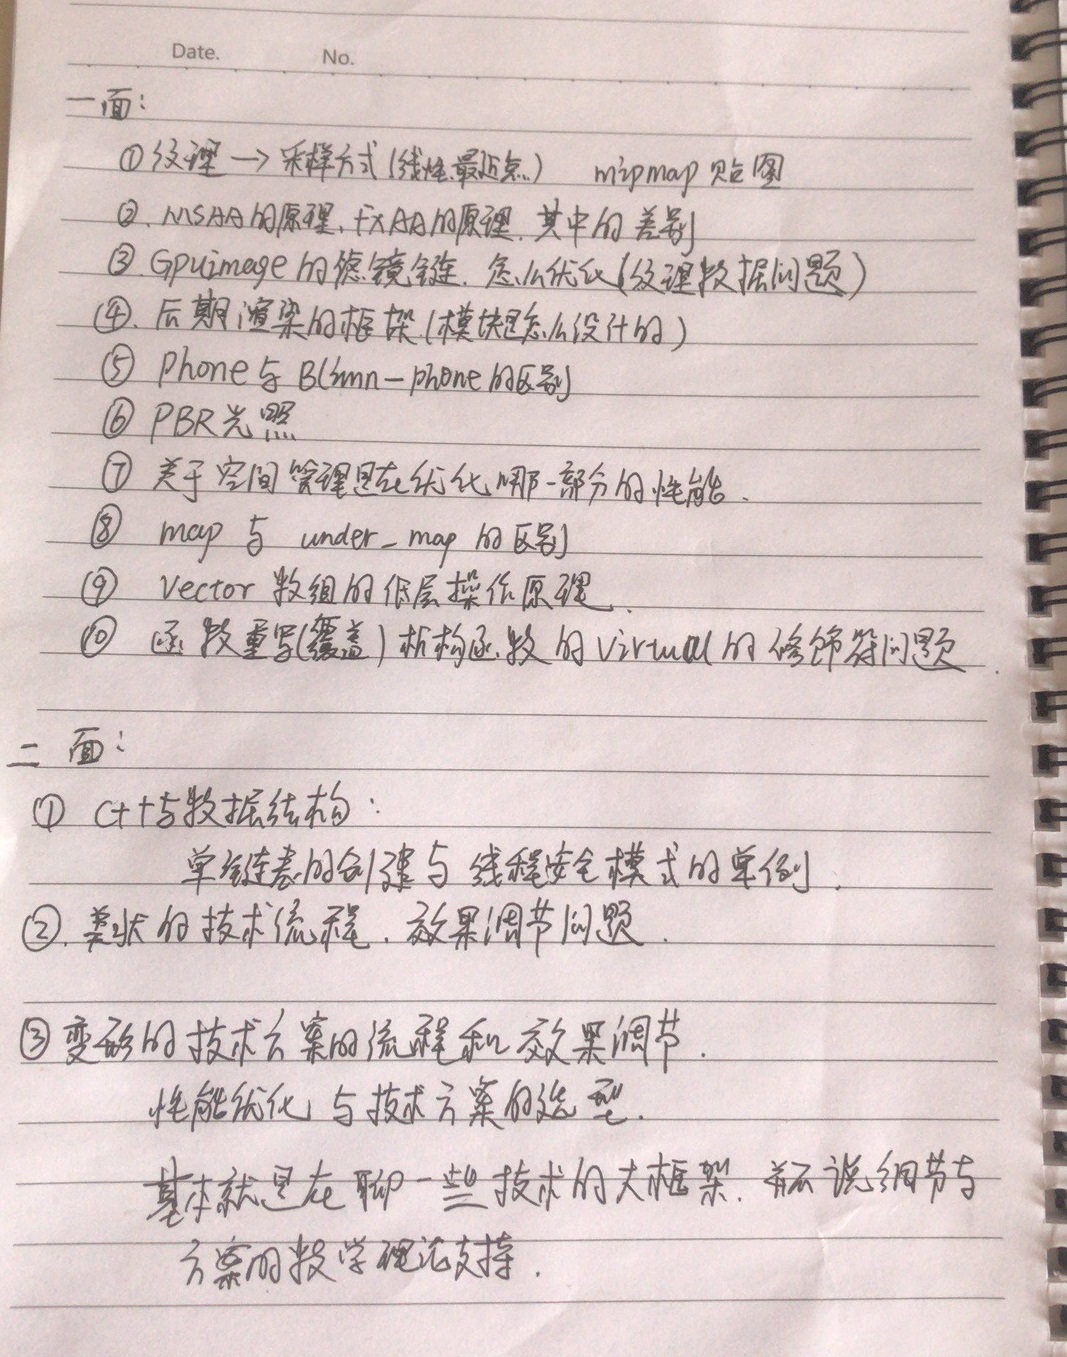 Date.  No.
一面:
① 纹理 → 采样方式(线性、最近点) mipmap 贴图
②. MSAA的原理、FXAA的原理. 其中的差别
③ Gpuimage 的滤镜链. 怎么优化(纹理数据问题)
④. 后期渲染的框架.(模块是怎么设计的)
⑤ Phone与 Blinn-phone的区别
⑥ PBR光照
⑦ 关于空间管理是在优化哪一部分的性能.
⑧ map 与 under_map 的区别
⑨ Vector 数组的低层操作原理.
⑩ 函数重写(覆盖) 析构函数的virtual的修饰符问题.
二面:
① C++与数据结构:
单链表的创建与线程安全模式的单例.
②. 美状的技术流程. 效果调节问题.
③ 变形的技术方案的流程和效果调节.
性能优化 与技术方案的选型.
基本就是在聊一些技术的大框架. 说细节与
方案的数学理论支持.